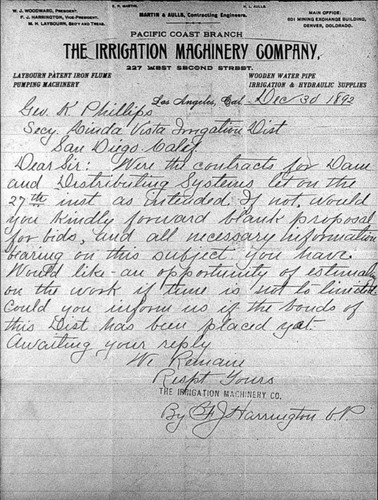 W. J. WOODWARD, PRESIDENT.
F. J. HARRINGTON, VICE-PRESIDENT.
M. H. LAYBOURN, SECTY AND TREAS.
MARTIN & AULLS, Contracting Engineers.
MAIN OFFICE:
601 MINING EXCHANGE BUILDING,
DENVER, COLORADO.
PACIFIC COAST BRANCH
THE IRRIGATION MACHINERY COMPANY,
227 WEST SECOND STREET.
LAYBOURN PATENT IRON FLUME
PUMPING MACHINERY
WOODEN WATER PIPE
IRRIGATION & HYDRAULIC SUPPLIES
Los Angeles, Cal. Dec 30 1892
Geo. K Phillips
Secy Linda Vista Irrigation Dist
San Diego Calif
Dear Sir: Were the contracts for Dam
and Distributing Systems let on the
27th inst as intended. If not, would
you kindly forward blank proposal
for bids, and all necessary information
bearing on this subject you have
Would like an opportunity of estimating
on the work if time is not to limited
Could you inform us if the bonds of
this Dist has been placed yet.
Awaiting your reply
We Remain
Respt Yours
THE IRRIGATION MACHINERY CO.
By F J Harrington V.P.